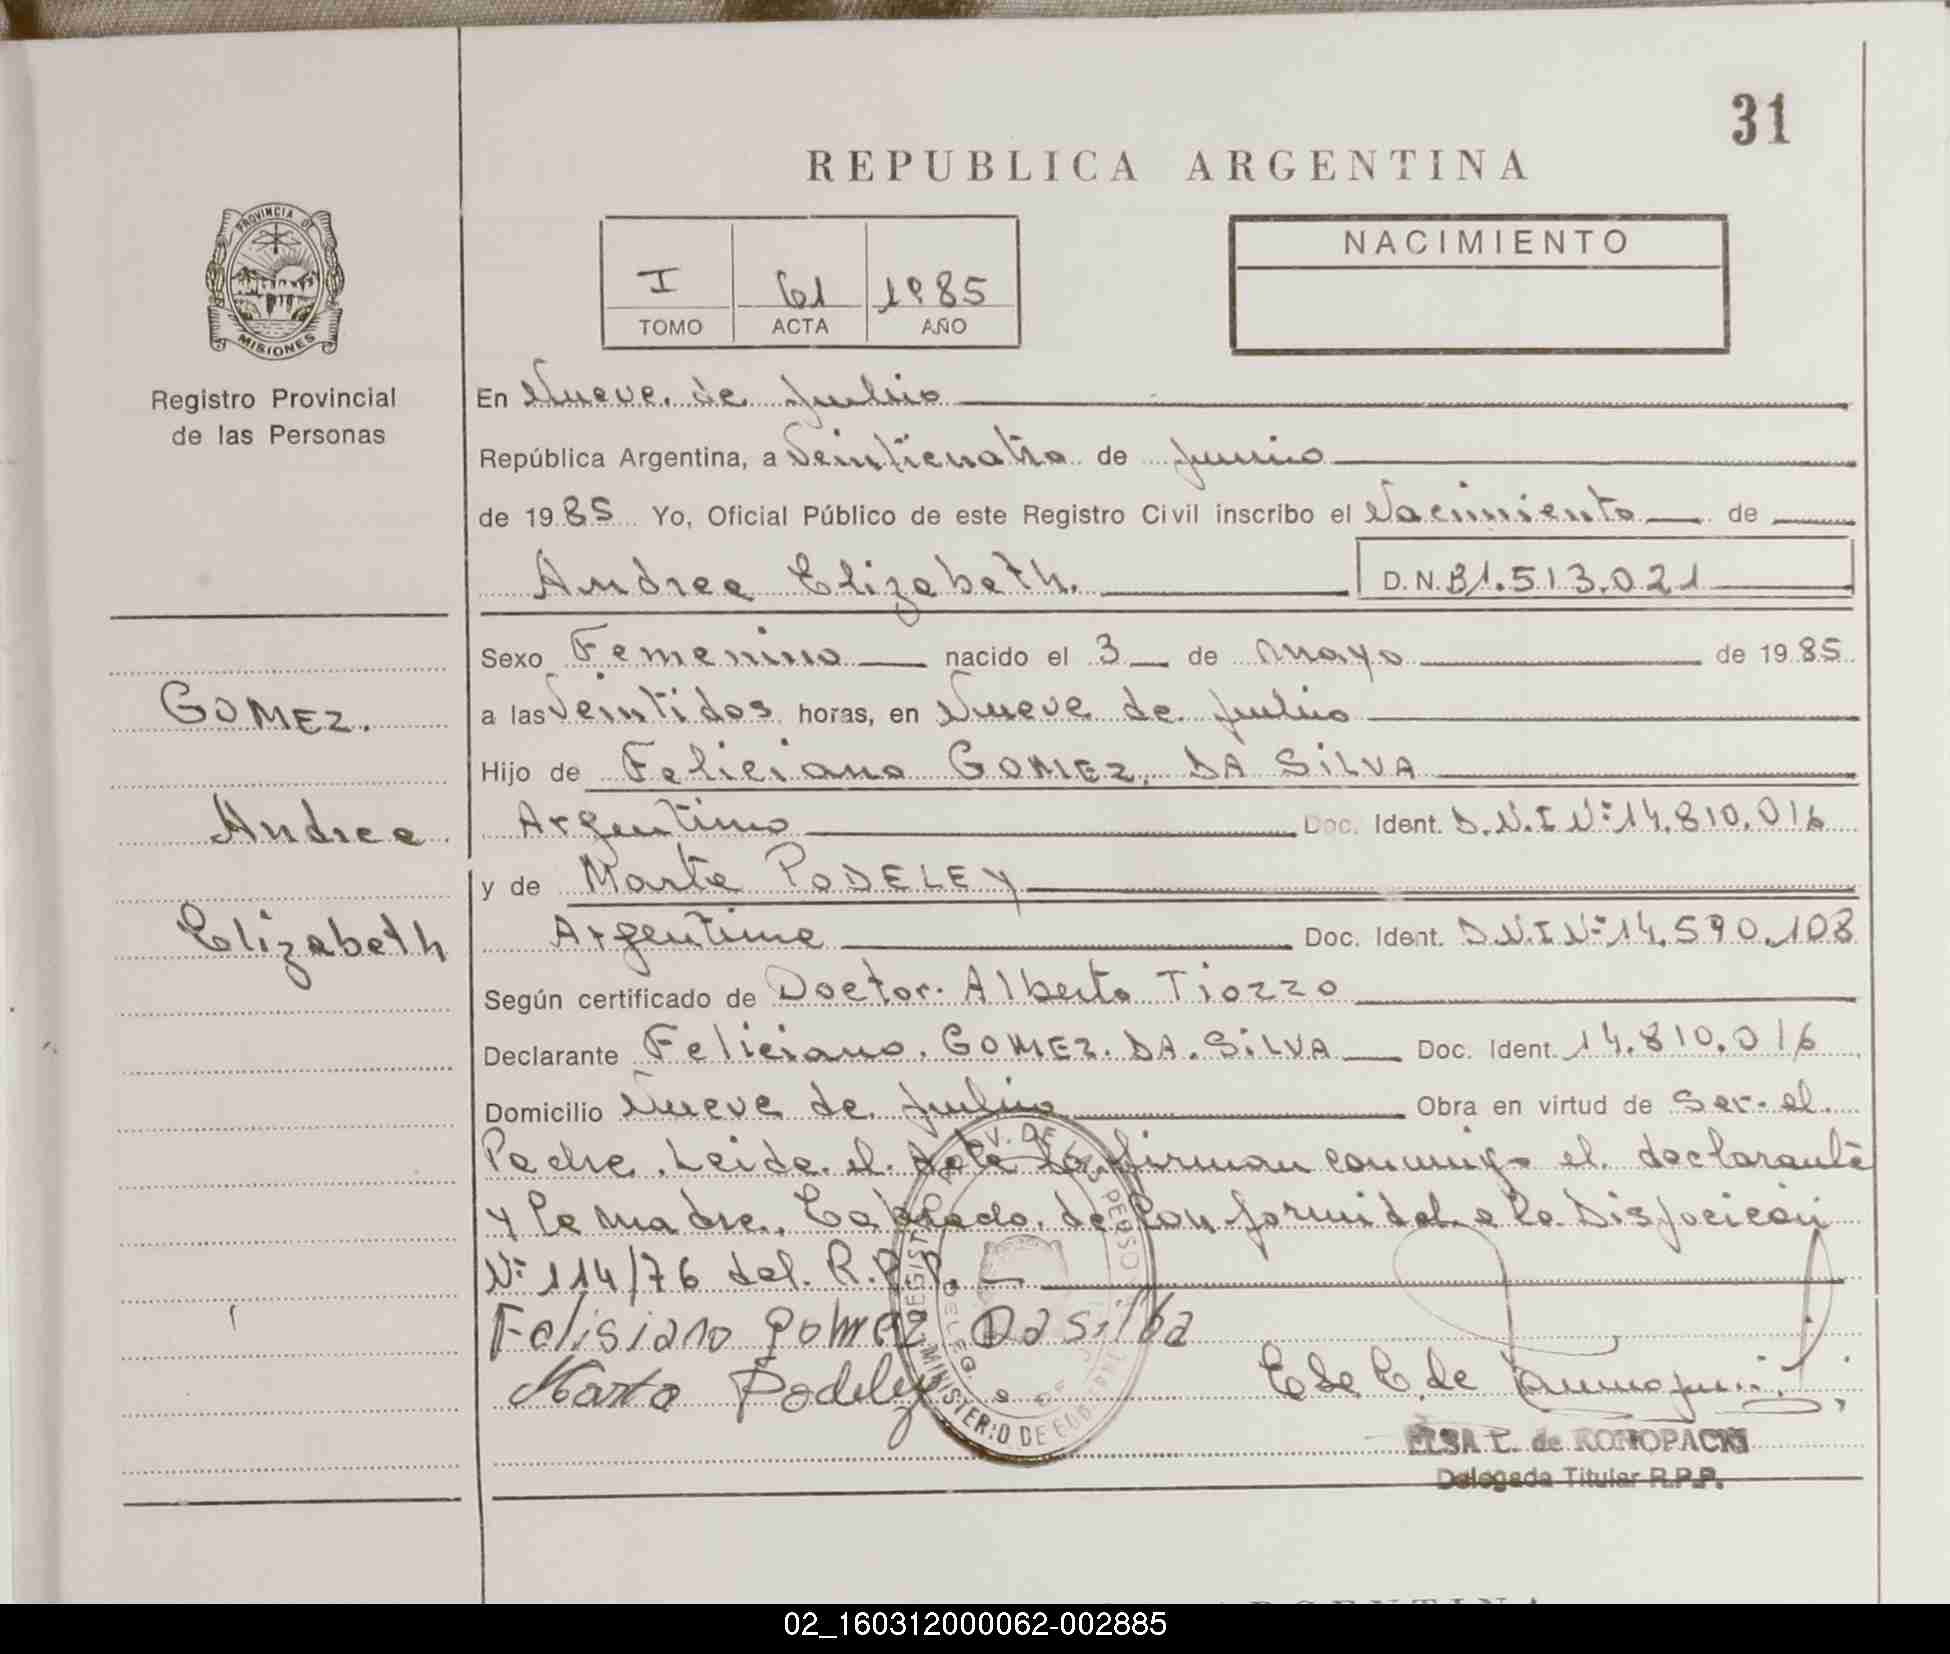 31
REPUBLICA ARGENTINA
PROVINCIA DE
MISIONES
Registro Provincial
de las Personas
I 61 1985
TOMO ACTA AÑO
NACIMIENTO
En Nueve de Julio
República Argentina, a Veinticuatro de Junio
de 1985 Yo, Oficial Público de este Registro Civil inscribo el Nacimiento de
Andrea Elizabeth. D.N. 31.513.021
Sexo Femenino nacido el 3 de Mayo de 1985
GOMEZ.
a las Veintidos horas, en Nueve de Julio
Hijo de Feliciano GOMEZ DA SILVA
Andrea
Argentino Doc. Ident. D.N.I Nº 14.810.016
y de Marta PODELEY
Elizabeth
Argentina Doc. Ident. D.N.I Nº 14.590.108
Según certificado de Doctor Alberto Tiozzo
Declarante Feliciano GOMEZ DA SILVA Doc. Ident. 14.810.016
Domicilio Nueve de Julio Obra en virtud de Ser el
Padre. Leida el Acta la firman conmigo el declarante
y la madre. Labrado de Conformidad a la Disposición
Nº 114/76 del R.P.P.
Felisiano gomez Dasilba
Marta Podeley
E de C. de
MINISTERIO DE GOBIERNO
ELSA C. de KONOPACKI
Delegada Titular R.P.P.
ARGENTINA
02_160312000062-002885